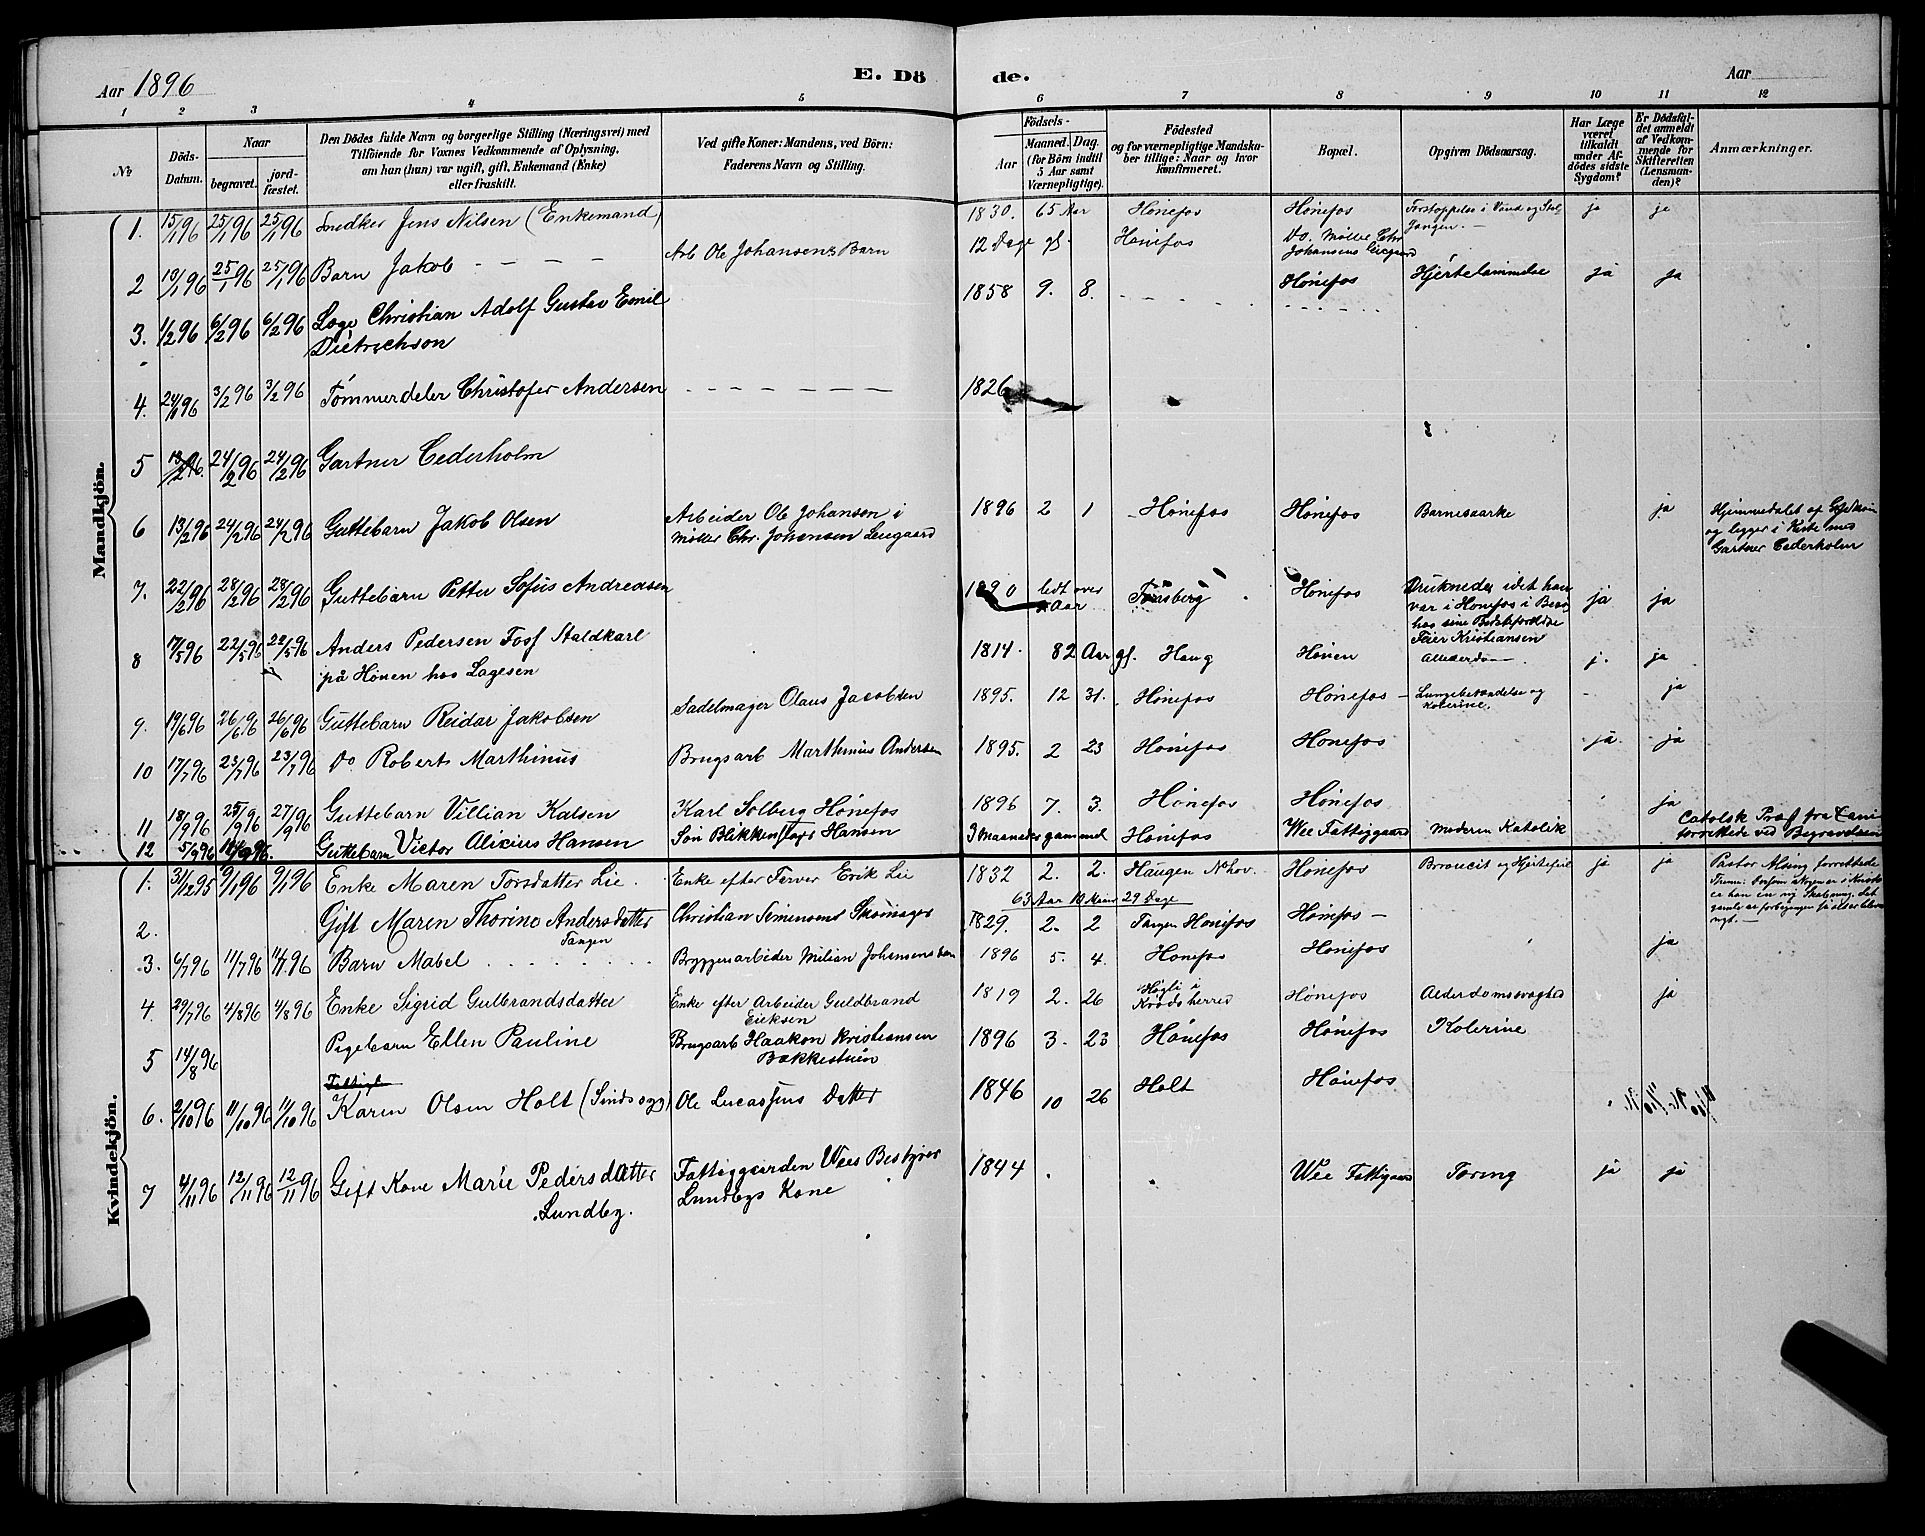 Aar 1896
E. Dö
de.
Aar
1 2 3 4 5 6 7 8 9 10 11 12
No
Döds-
Datum.
Naar
begravet.
jord-
fæstet.
Den Dödes fulde Navn og borgerlige Stilling (Næringsvei) med
Tilföiende for Voxnes Vedkommende af Oplysning,
om han (hun) var ugift, gift, Enkemand (Enke)
eller fraskilt.
Ved gifte Koner: Mandens, ved Börn:
Faderens Navn og Stilling.
Födsels-
Aar
Maaned. Dag.
(for Börn indtil
5 Aar samt
Værnepligtige).
Födested
og for værnepligtige Mandska-
ber tillige: Naar og hvor
konfirmeret.
Bopæl.
Opgiven Dödsaarsag.
Har Læge
været
tilkaldt
under Af-
dödes sidste
Sygdom?
Er Dödsfal-
det anmeldt
af Vedkom-
mende for
Skifteretten
(Lensman-
den)?
Anmærkninger.
Mandkjön.
1. 15/1 96 25/1 96 25/1 96 Snedker Jens Nilsen (Enkemand) 1830. 65 Aar Hönefos Hönefos Forstoppelse i Vand og ja ja
2 19/1 96 25/1 96 25/1 96 Barn Jakob - - - - Arb Ole Johansens Barn 12 Dage gl. Hönefos Do. Möller Chr
Johansens
3. 1/2 96 6/2 96 6/2 96 Læge Christian Adolf Gustav Emil 1858 9. 8. - - - - - Hönefos Hjertelammelse ja ja
Dietrichson
4. 24/1 96 3/2 96 3/2 96 Tömmerdeler Christofer Andersen - - - - - - 1826
5 13/2 96. 24/2 96 24/2 96 Gartner Cederholm
6 13/2 96 24/2 96 24/2 96 Guttebarn Jakob Olsen Arbeider Ole Johansen i 1896 2 1 Hönefos Hönefos ja Hjemmedöbt af
Möller Chr. Johansen og ligger i Kiste med
Gartner Cederholm
7. 22/2 96 28/2 96 28/2 96 Guttebarn Petter Sofus Andreasen 1890 lidt over Hönefos Druknede idet han ja ja
Aar var i Hönefos i
hos sine Bedsteforeldre
Feier Kristiansen
8 17/5 96 22/5 96 22/5 96 Anders Pedersen Foss Staldkarl 1814. 82 Aar gl. Haug Hönen j. ja
på Hönen hos Lagesen
9. 19/6 96 26/6 96 26/6 96 Guttebarn Reidar Jakobsen Sadelmager Olaus Jacobsen 1895. 12 31. Hönefos Hönefos Lungebetændelse og - ja
kolerine.
10 17/7 96 23/7 96 23/7 96 Do Robert Marthinus Brugsarb Marthinus Andersen 1895. 2 23 Hönefos Hönefos ja. ja
11 18/9 96 25/9 96 27/9 96 Guttebarn Villian Kalsen Karl Solberg Hönefos 1896 7. 3. Hönefos Hönefos ja
12 5/9 96 Guttebarn Victor Alicius Hansen Sön Blikkenslager Hansen 3 Maaneder gammel Hönefos Wee Fattiggaard Moderen Katolik Catolsk Præst fra
forrettede ved Begravelsen
Kvindekjön.
1. 31/12 95 9/1 96 9/1 96 Enke Maren Torsdatter Lie. Enke efter Farver Erik Lie 1832 2. 2. Haugen N hov. Hönefos ja ja Pastor Alsing forrettede
63 Aar 10 Mdr 29 Dage
2. Gift Maren Thorine Andersdatter Christian Simensens Skomager 1829. 2. 2 Tangen Hönefos Hönefos -
Tangen
3. 6/7 96 11/7 96 11/7 96 Barn Mabel Bryggeriarbeider Milian Johansens 1896 5. 4. Hönefos Hönefos ja
4. 29/7 96 4/8 96 4/8 96 Enke Sigrid Gulbrandsdatter Enke efter Arbeider Guldbrand 1819 2. 26 Högli i Hönefos Alderdomssvaghed ja
Eriksen Krödsherred
5 14/8 96 Pigebarn Ellen Pauline Brugsarb Haakon Kristiansen 1896 3. 23 Hönefos Hönefos Kolerine
Bakkestuen
6. 2/10 96 11/10 96 11/10 96 Karen Olsen Holt (Sindssyg) Ole Lucassens Datter 1846 10 26 Holt Hönefos
7 4/11 96 12/11 96 12/11 96 Gift Kone Marie Pedersdatter Fattiggaarden Wees Bestyrer 1844 Wee Fattigaard Tæring ja ja
Lundby. Lundbys Kone